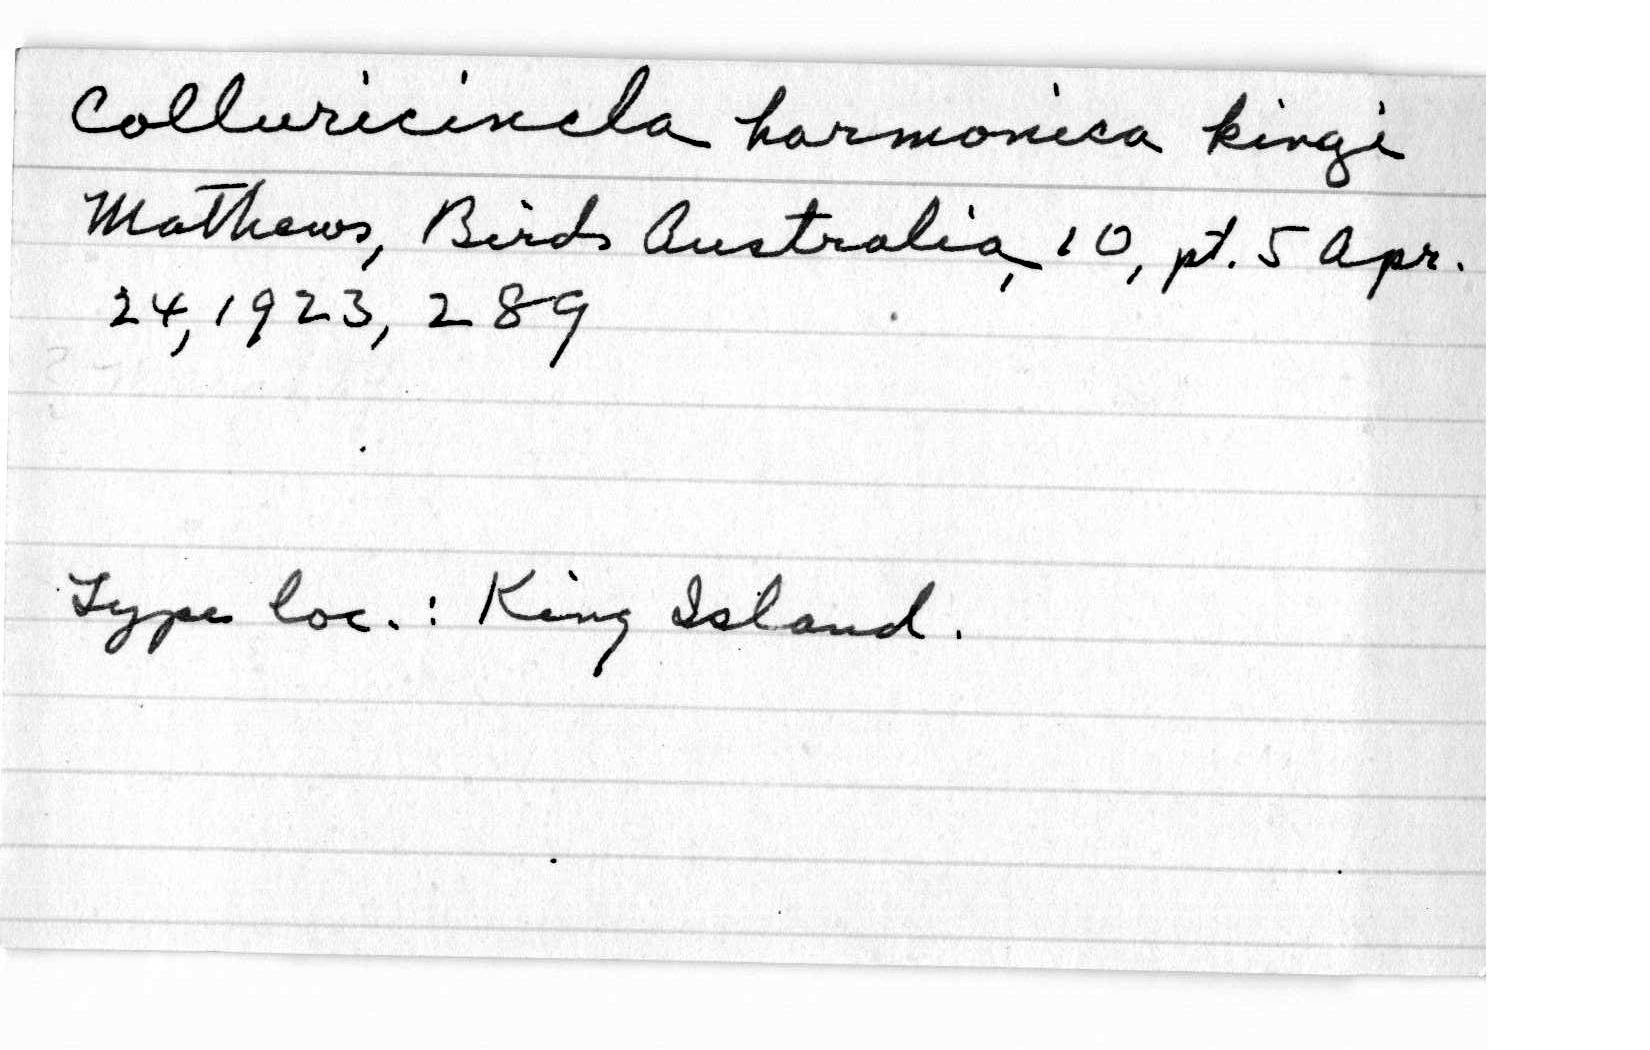 Colluricincla harmonica kingi
Mathews, Birds Australia, 10, pt. 5 Apr.
24, 1923, 289
Type loc. : King Island.